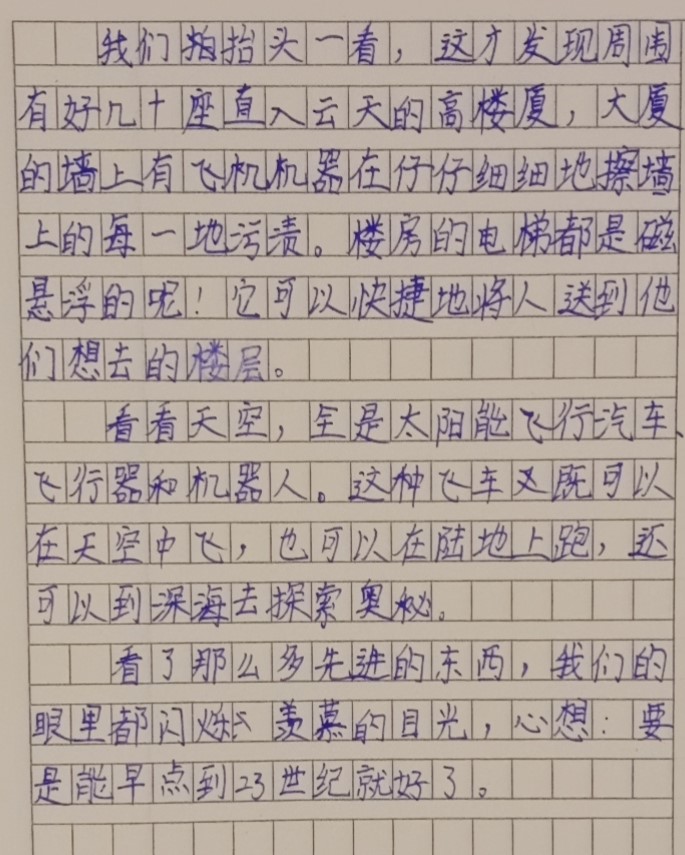 我们抬抬头一看，这才发现周围
有好几十座直入云天的高楼厦，大厦
的墙上有飞机机器在仔仔细细地擦墙
上的每一地污渍。楼房的电梯都是磁
悬浮的呢！它可以快捷地将人送到他
们想去的楼层。
看看天空，全是太阳能飞行汽车、
飞行器和机器人。这种飞车又既可以
在天空中飞，也可以在陆地上跑，还
可以到深海去探索奥秘。
看了那么多先进的东西，我们的
眼里都闪烁羡慕的目光，心想：要
是能早点到23世纪就好了。